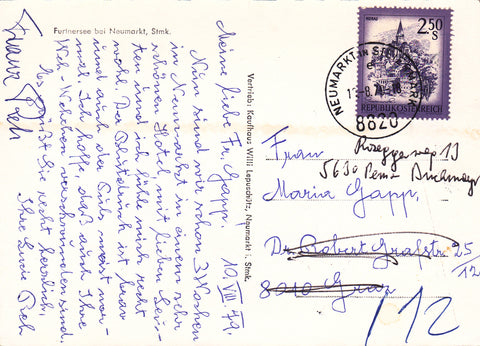 Furtnersee bei Neumarkt, Stmk.
Vertrieb: Kaufhaus Willi Lepuschütz, Neumarkt i. Stmk.
10. VIII 79.
Meine liebe Fr. Gapp,
Nun sind wir schon 3 Wochen
in Neumarkt in einem sehr
schönen Hotel mit lieben Leu-
ten und ich fühle mich recht
wohl. Der ist brav
und auch der
mal. Ich hoffe, daß auch Ihre
Weh-Wehchen verschwunden sind.
Es grüßt Sie recht herzlich,
Ihre Luis Peh
Franz Peh
2.50
S
MURAU
REPUBLIK ÖSTERREICH
NEUMARKT IN STEIERMARK
8820
Frau
Roseggerweg 13
Maria Gapp,
Dr. Robert Grafstr 25/12
8010 Graz
112